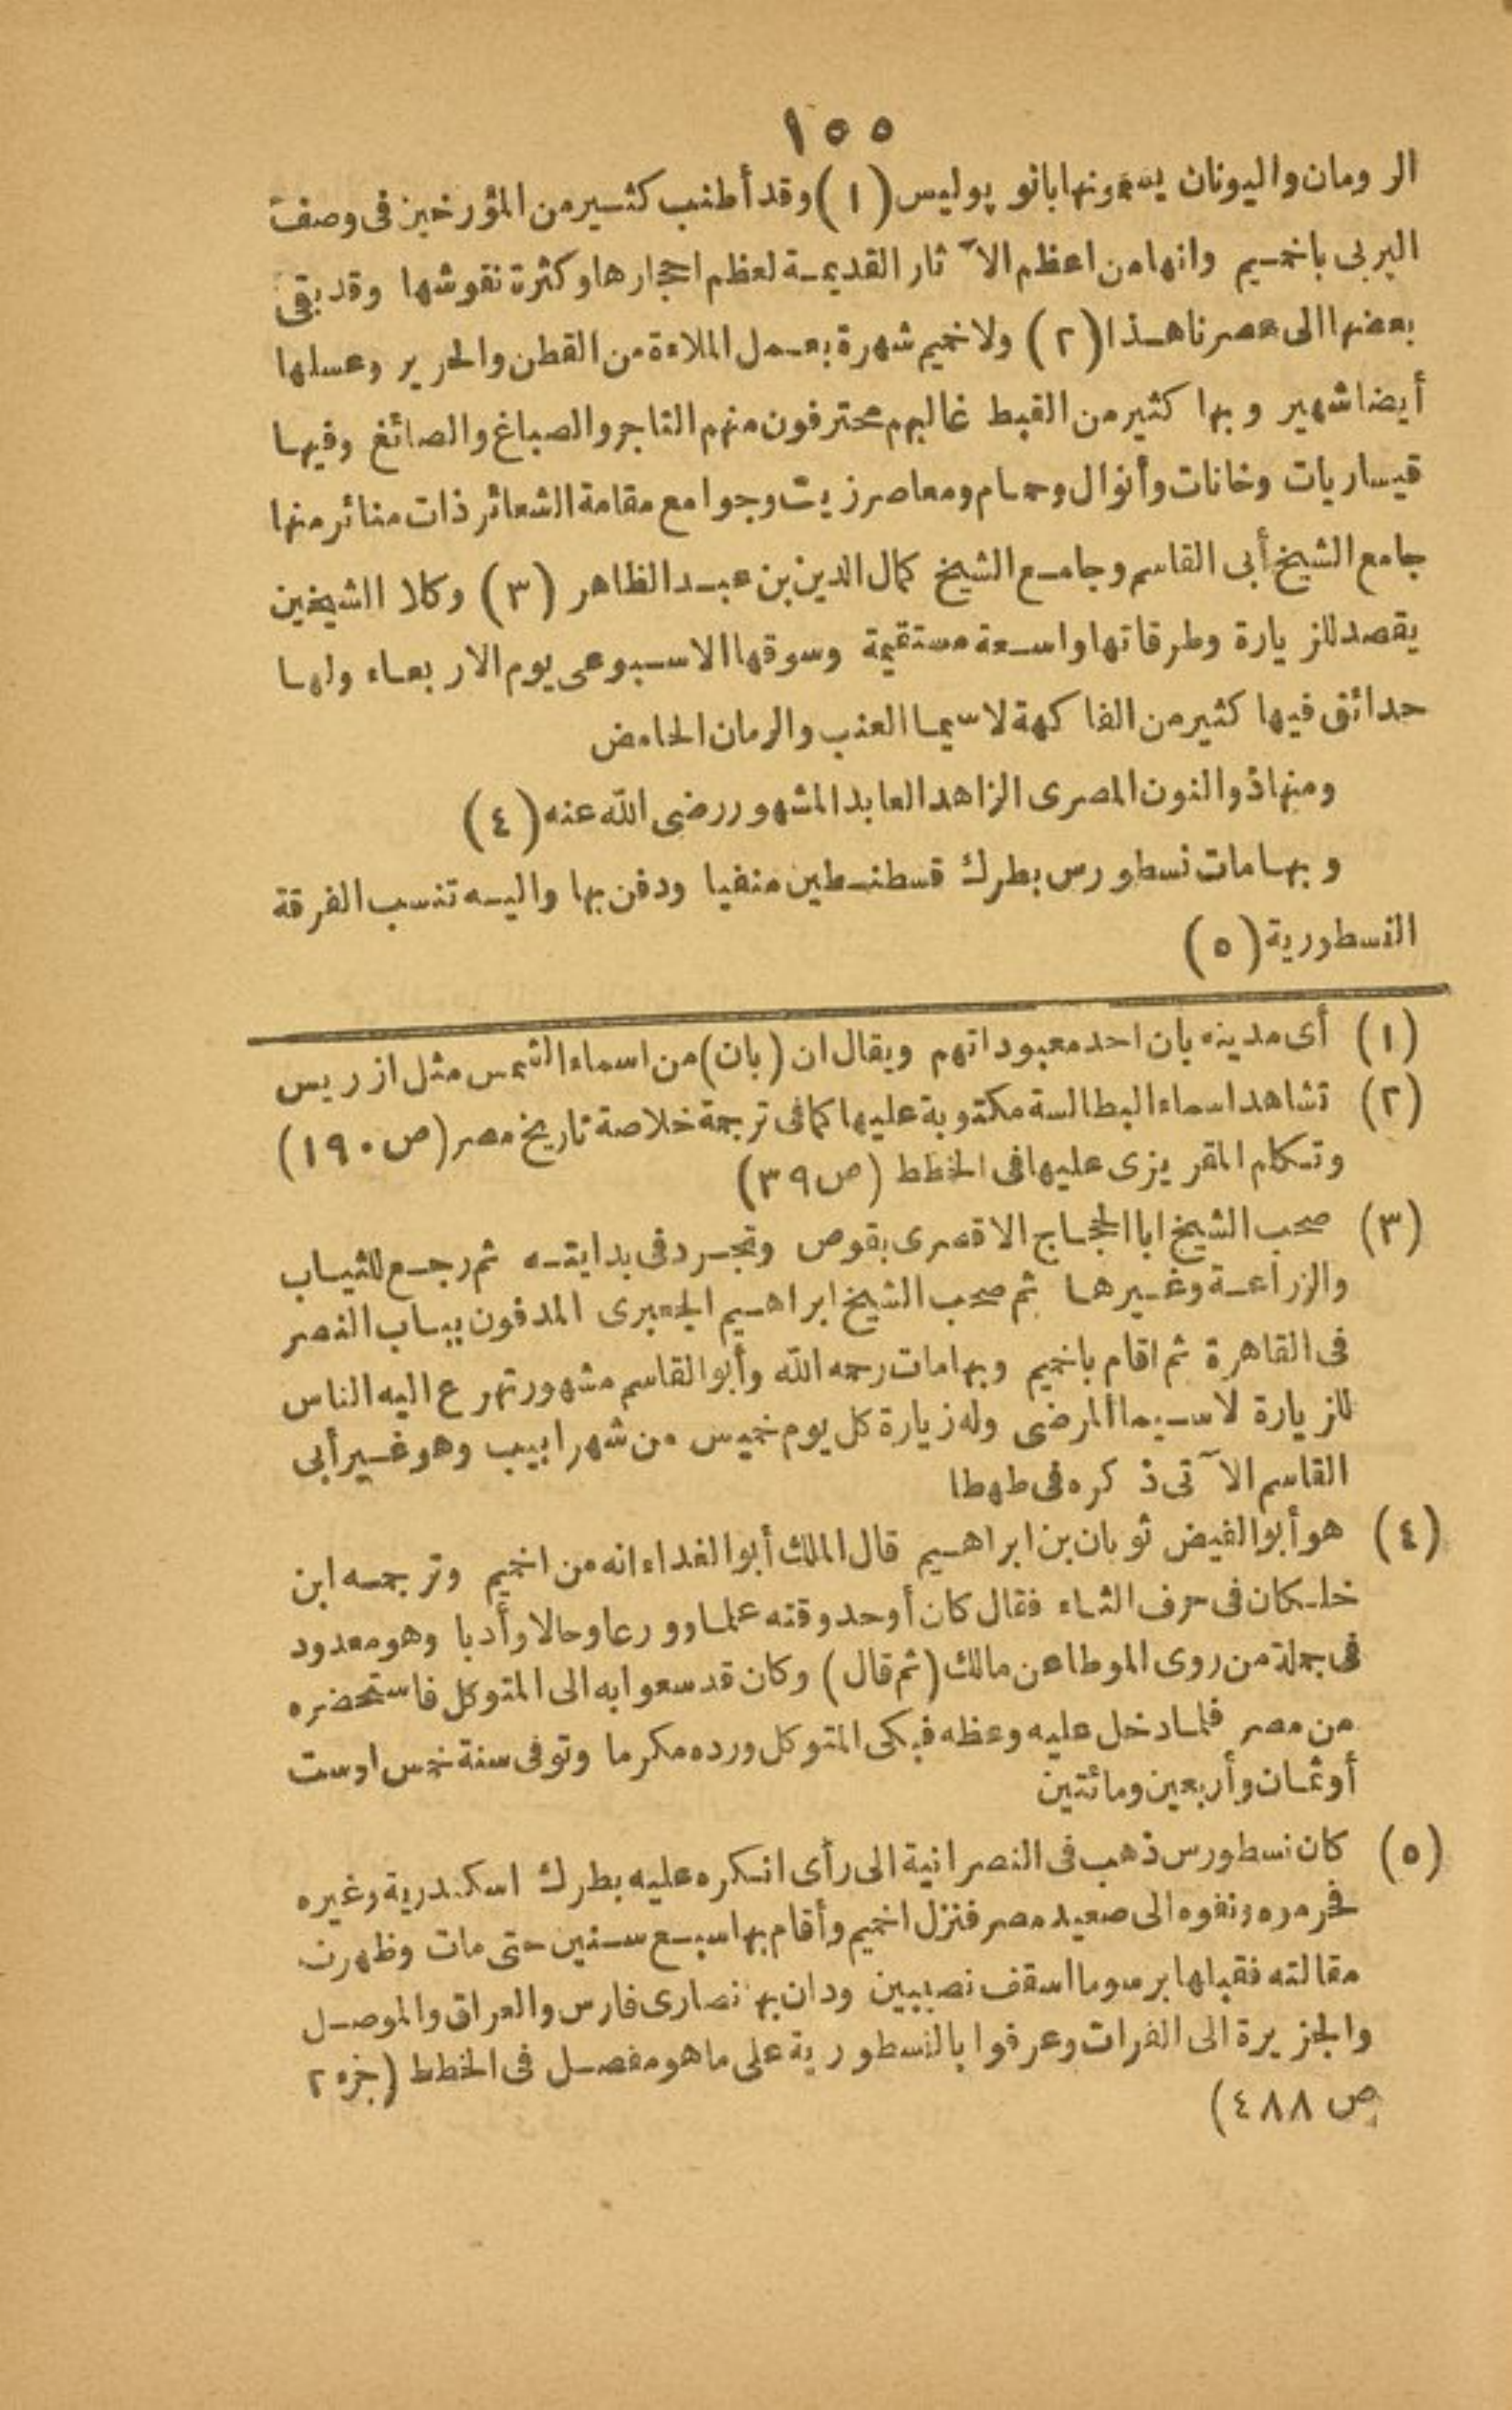 ١٥٥
الرومان واليونان يسمونها بانو پوليس (١) وقد أطنب كثير من المؤرخين فى وصف
البربى باخميم وانها من اعظم الآثار القديمة لعظم احجارها وكثرة نقوشها وقد بقى
بعضها الى عصرنا هذا (٢) ولاخميم شهرة بعمل الملاءة من القطن والحرير وعسلها
أيضا شهير وبها كثير من القبط غالبهم محترفون منهم التاجر والصباغ والصائغ وفيها
قيساريات وخانات وأنوال وحمام ومعاصر زيت وجوامع مقامة الشعائر ذات منائر منها
جامع الشيخ أبى القاسم وجامع الشيخ كمال الدين بن عبد الظاهر (٣) وكلا الشيخين
يقصد للزيارة وطرقاتها واسعة مستقيمة وسوقها الاسبوعى يوم الاربعاء ولها
حدائق فيها كثير من الفاكهة لاسيما العنب والرمان الحامض
ومنها ذو النون المصرى الزاهد العابد المشهور رضى الله عنه (٤)
وبها مات نسطورس بطرك قسطنطين منفيا ودفن بها واليه تنسب الفرقة
النسطورية (٥)
(١) أى مدينه بان احد معبوداتهم ويقال ان (بان) من اسماء الشمس مثل ازريس
(٢) تشاهد اسماء البطالسة مكتوبة عليها كما فى ترجمة خلاصة تاريخ مصر (ص ١٩٠)
وتكلم المقريزى عليها فى الخطط (ص ٣٩)
(٣) صحب الشيخ ابا الحجاج الاقصرى بقوص وتجرد فى بدايته ثم رجع للثياب
والزراعة وغيرها ثم صحب الشيخ ابراهيم الجعبرى المدفون بباب النصر
فى القاهرة ثم اقام باخميم وبها مات رحمه الله وأبو القاسم مشهور تهرع اليه الناس
للزيارة لاسيما المرضى وله زيارة كل يوم خميس من شهر ابيب وهو غير أبى
القاسم الآتى ذكره فى طهطا
(٤) هو أبو الفيض ثوبان بن ابراهيم قال الملك أبو الفداء انه من اخميم وترجمه ابن
خلكان فى حرف الثاء فقال كان أوحد وقته علما وورعا وحالا وأدبا وهو معدود
فى جملة من روى الموطا عن مالك (ثم قال) وكان قد سعوا به الى المتوكل فاستحضره
من مصر فلما دخل عليه وعظه فبكى المتوكل ورده مكرما وتوفى سنة خمس اوست
أوثمان وأربعين ومائتين
(٥) كان نسطورس ذهب فى النصرانية الى رأى انكره عليه بطرك اسكندرية وغيره
فحرموه ونفوه الى صعيد مصر فنزل اخميم وأقام بها سبع سنين حتى مات وظهرت
مقالته فقبلها برسوما اسقف نصيبين ودان بها نصارى فارس والعراق والموصل
والجزيرة الى الفرات وعرفوا بالنسطورية على ما هو مفصل فى الخطط (جزء ٢
ص ٤٨٨)